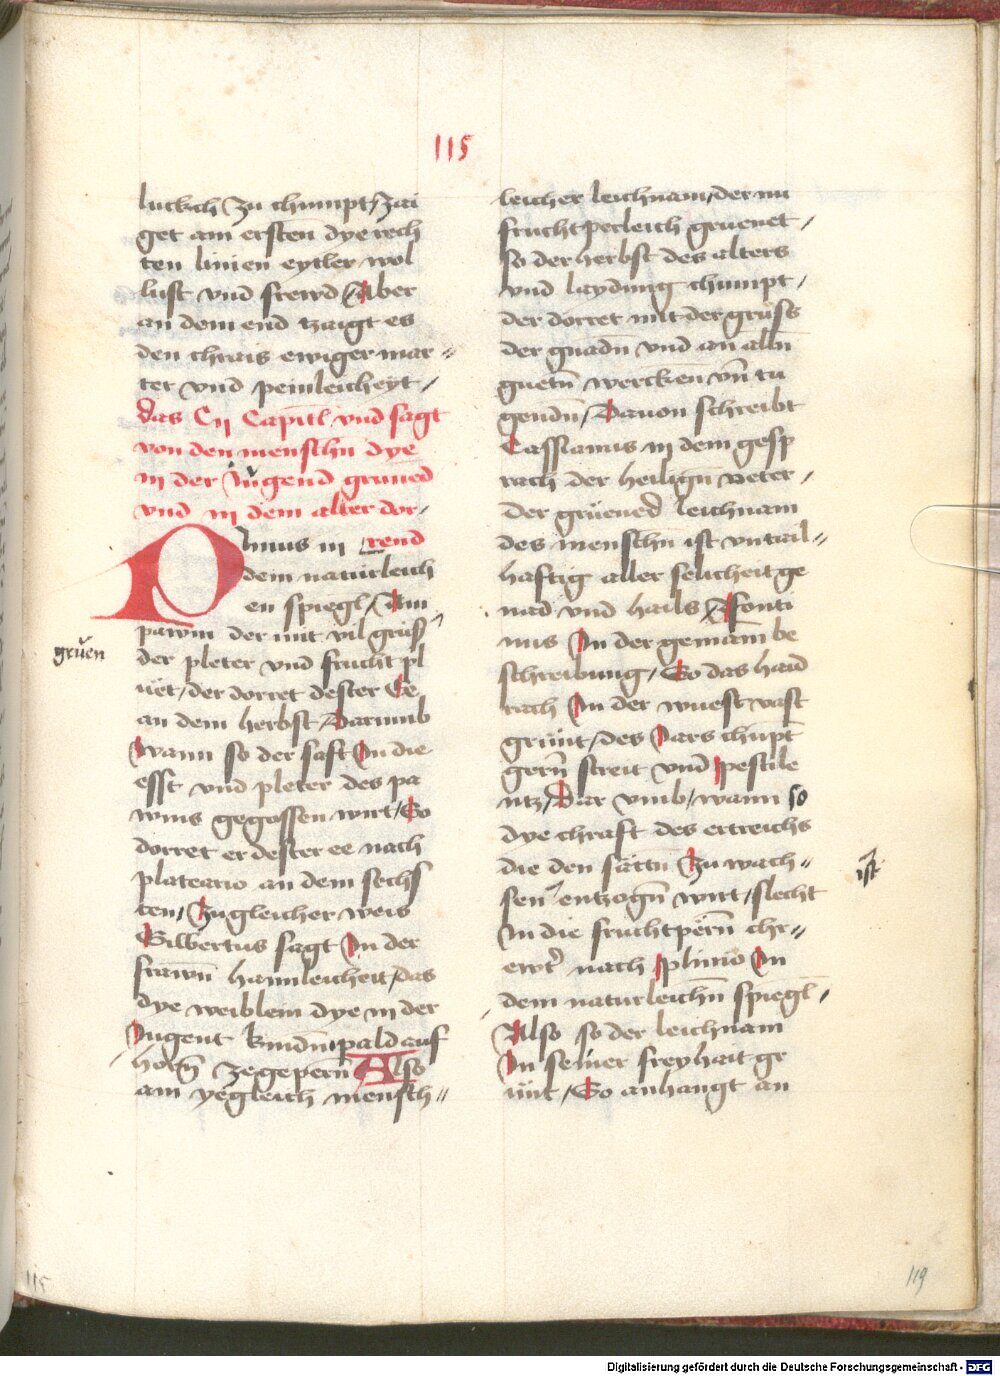 115
luckch zu chumpt / zai
get am ersten dye rech
ten linien eytler wol
lust vnd frewd / Aber
an dem end tzaigt es
den chrais ewiger mar =
ter vnd peinleicheyt /
das Cij Capitl vnd sagt
von den menschn dye
in der Jugend grüned
vnd in dem alter dor /
Pinius in rend
dem naturleich
en spiegl / Ain
pawm der mit vil grüss
gruen
der pleter vnd frucht pl
üet / der dorret dester Ee
an dem herbst / Darumb
wann so der saft In die
esst vnd pleter des pa
wms gegossen wirt / So
dorret er dester ee nach
plateario an dem sechs
ten / Zugleicher weis
Gilbertus sagt In der
frawn hamleicheit / das
dye weiblein dye in der
Jugent kindn pald auf
horn zegepern Also
am yegleich mensch =
leicher leichnam / der nu
fruchtperleich gruenet /
so der herbst des alters
vnd laydung chumpt /
der dorret mit der gruss
der gnadn vnd an alln
guetn wercken vn tu
gendn / Dauon schreibt
Cassianus in dem gesp
rach der heilign veter /
der grüened leichnam
des menschn ist vntail =
haftig aller selicheit ge
nad vnd hails / Sonti
nus In der gemain be
schreibung / So das haid
rach In der wuest vast
grünt / des Jars chupt
gern streit vnd pestile
ntz / Dar vmb / wann so
dye chraft des ertreichs
die den sattn Zu wach =
ist
sen entzogn wirt / slecht
in die fruchtpern chr =
ewt nach plinio In
dem naturleichn spiegl /
Also so der leichnam
In seiner freyhait gr
ünt / So anhangt an
115
119
Digitalisierung gefördert durch die Deutsche Forschungsgemeinschaft - DFG